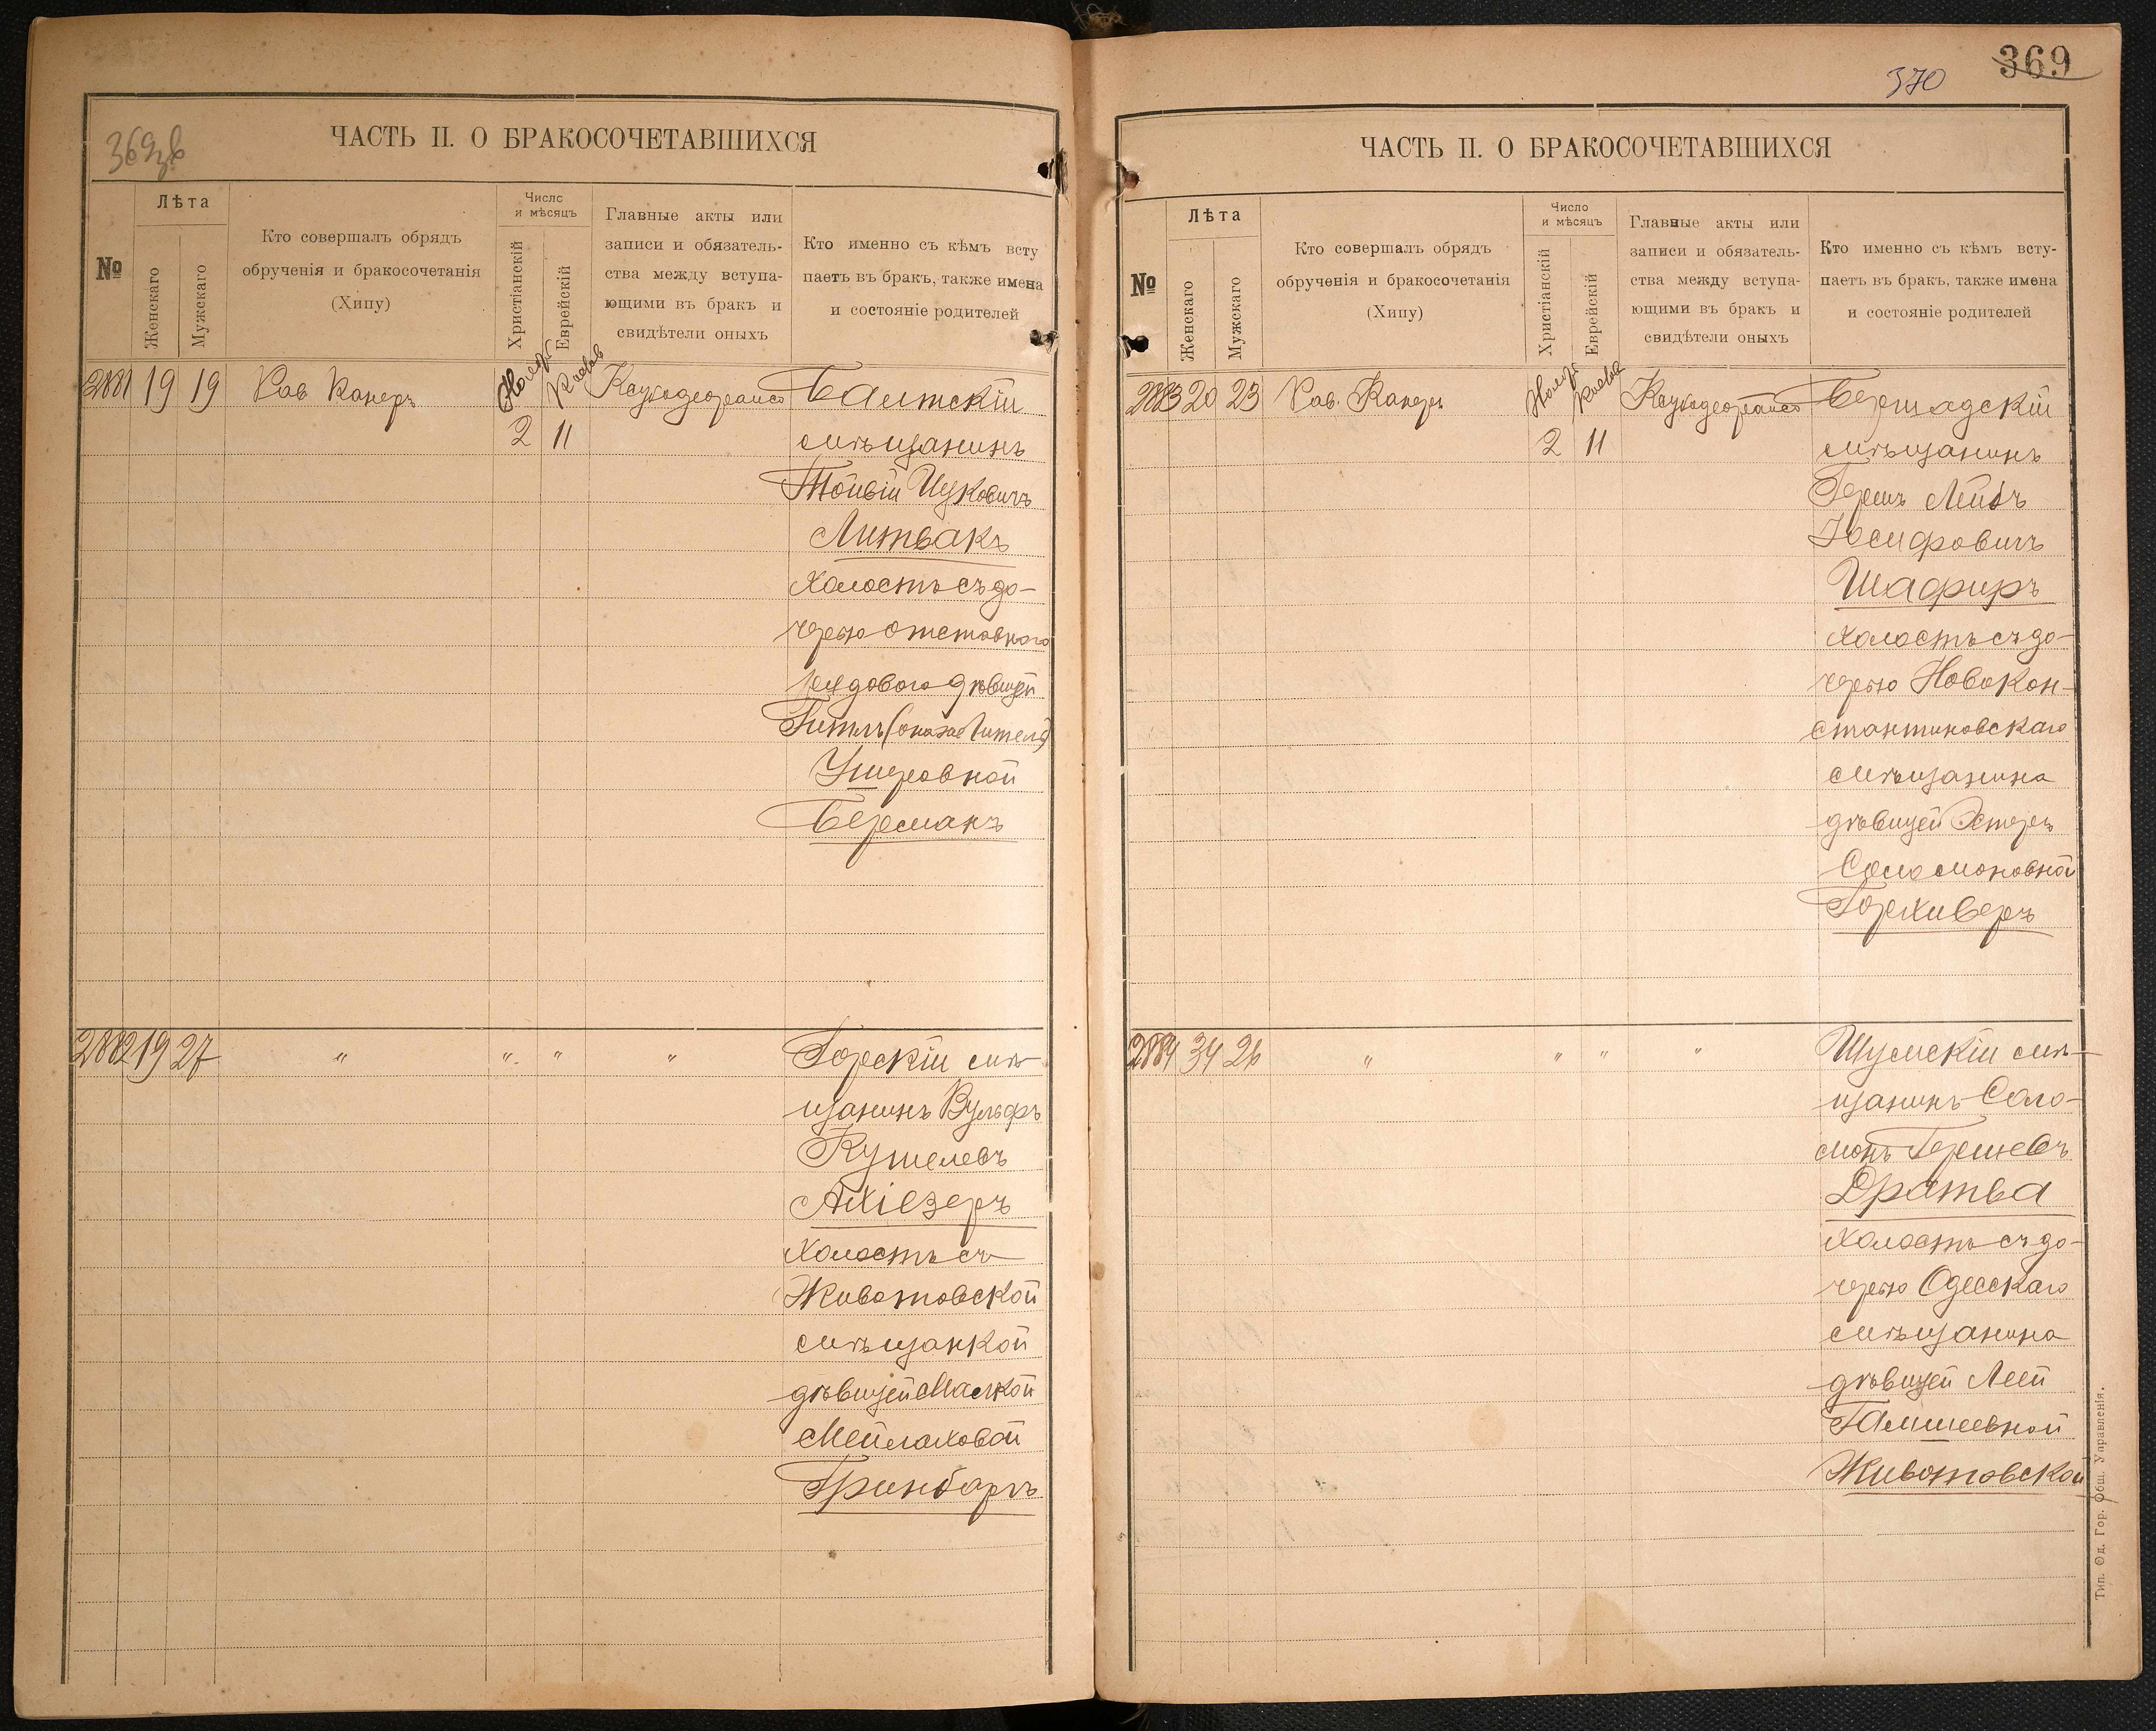 369зв
ЧАСТЬ II. О БРАКОСОЧЕТАВШИХСЯ
№
Лѣта
Женскаго
Мужскаго
Кто совершалъ обрядъ
обрученія и бракосочетанія
(Хипу)
Число
и мѣсяцъ
Христіанскій
Еврейскій
Главные акты или
записи и обязатель-
ства между вступа-
ющими въ бракъ и
свидѣтели оныхъ
Кто именно съ кѣмъ всту
паетъ въ бракъ, также имена
и состояніе родителей
2881 19 19 Рав Канеръ
2 11
Балтскій
мѣщанинъ
Тойвій Ицковичъ
Литвакъ
холостъ съ до-
черью отставного
рядового дѣвицей
Гитль (она же Гитела)
Ушеровной
Берманъ
2882 19 27 " " " "
Горскій мѣ-
щанинъ Вульфъ
Кушелевъ
Ахіезеръ
холостъ съ
Животовской
мѣщанкой
дѣвицей Малкой
Мейлаховой
Гринбаргъ
370
369
ЧАСТЬ II. О БРАКОСОЧЕТАВШИХСЯ
№
Лѣта
Женскаго
Мужскаго
Кто совершалъ обрядъ
обрученія и бракосочетанія
(Хипу)
Число
и мѣсяцъ
Христіанскій
Еврейскій
Главные акты или
записи и обязатель-
ства между вступа-
ющими въ бракъ и
свидѣтели оныхъ
Кто именно съ кѣмъ всту-
паетъ въ бракъ, также имена
и состояніе родителей
2883 20 23 Рав. Канеръ
2 11
Бершадскій
мѣщанинъ
Гершъ Лейбъ
Іосифовичъ
Шафиръ
холостъ съ до-
черью Новокон-
стантиновскаго
мѣщанина
дѣвицей Эстеръ
Соломоновной
Горхиверъ
2884 34 26 " " " "
Шумскій мѣ-
щанинъ Соло-
монъ Гершевъ
Дратва
холостъ съ до-
черью Одесскаго
мѣщанина
дѣвицей Леей
Гамшеевной
Животовской
Тип. Од. Гор. Общ. Управленія.